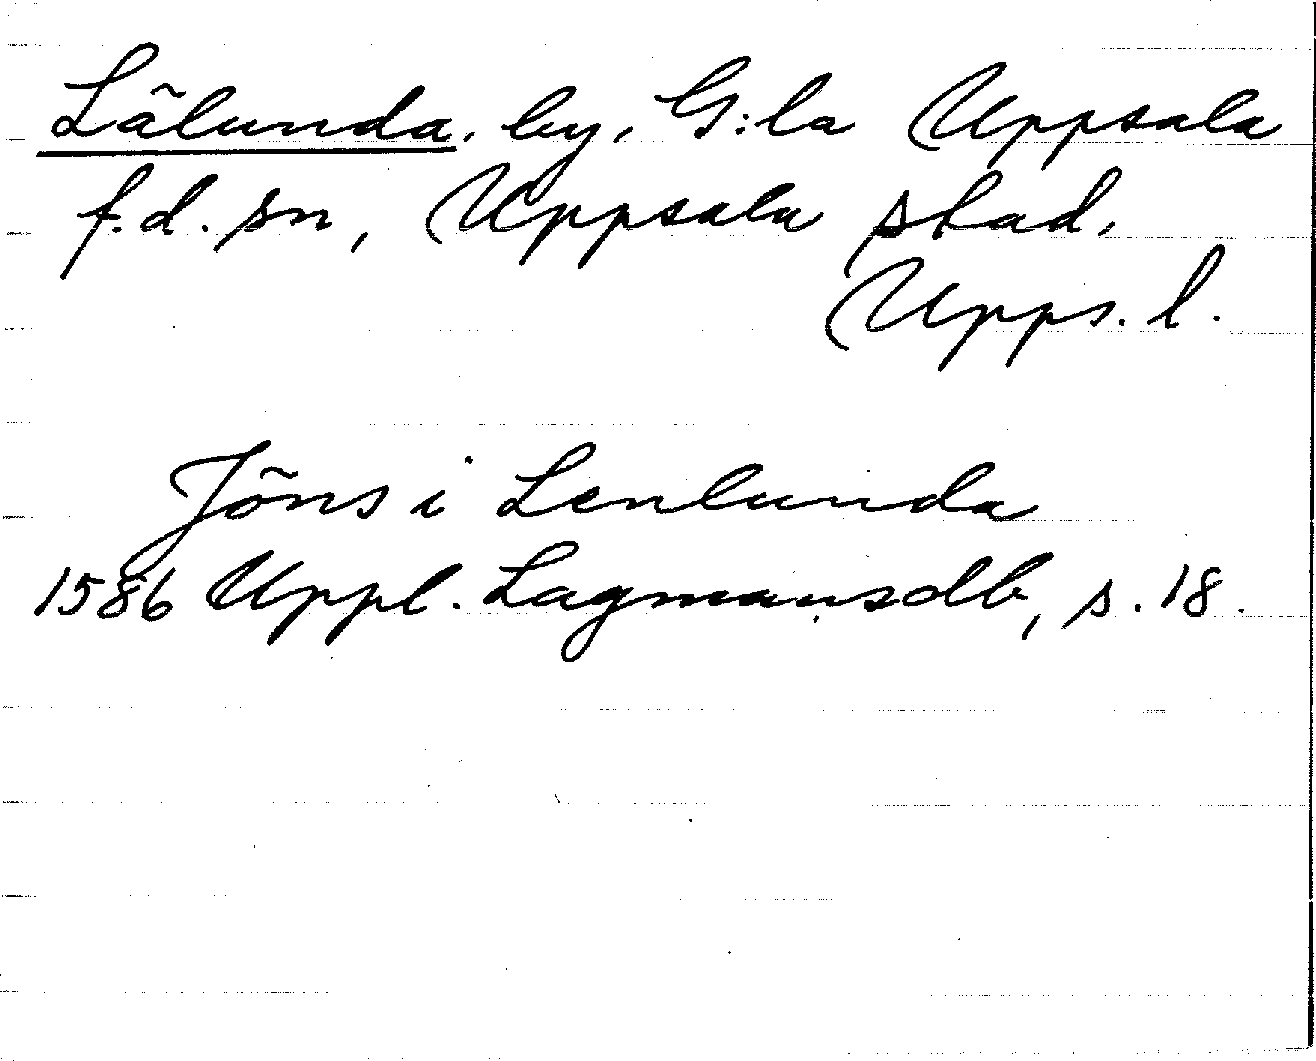 Lälunda, by, G:la Uppsala
f.d. sn, Uppsala stad,
Upps. l.
Jöns i Lenlunda
1586 Uppl. Lagmansdb, s. 18.